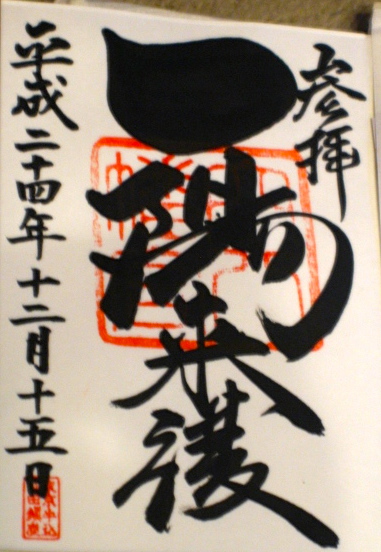 参拝
一陽来復
平成二十四年十二月十五日